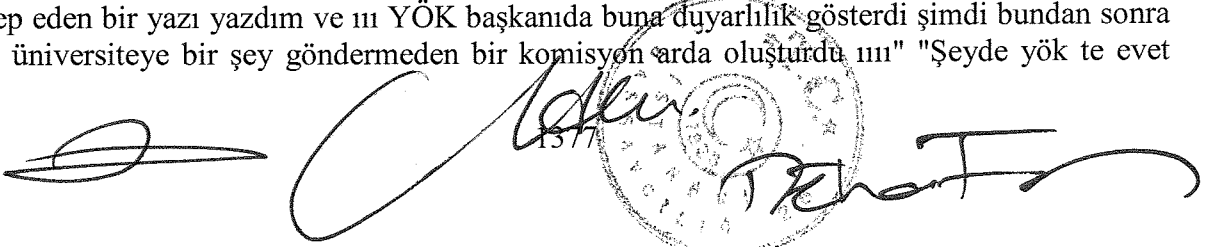 ep eden bir yazı yazdım ve ııı YÖK başkanıda buna duyarlılık gösterdi şimdi bundan sonra
üniversiteye bir şey göndermeden bir komisyon arda oluşturdu ıııı" "Şeyde yök te evet
1377